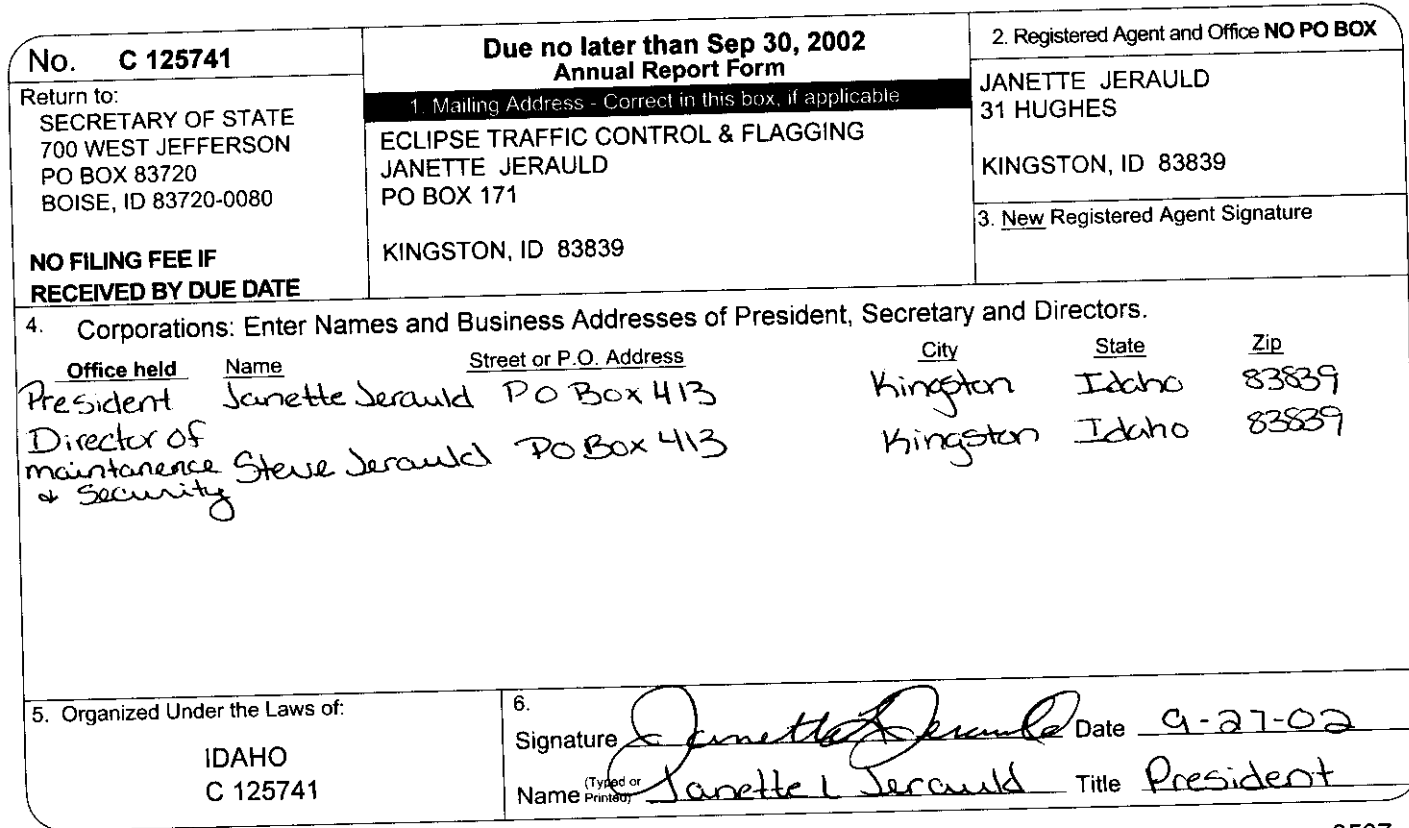 No. C 125741
Return to:
SECRETARY OF STATE
700 WEST JEFFERSON
PO BOX 83720
BOISE, ID 83720-0080
NO FILING FEE IF
RECEIVED BY DUE DATE
Due no later than Sep 30, 2002
Annual Report Form
1. Mailing Address - Correct in this box, if applicable
ECLIPSE TRAFFIC CONTROL & FLAGGING
JANETTE JERAULD
PO BOX 171
KINGSTON, ID 83839
2. Registered Agent and Office NO PO BOX
JANETTE JERAULD
31 HUGHES
KINGSTON, ID 83839
3. New Registered Agent Signature
4. Corporations: Enter Names and Business Addresses of President, Secretary and Directors.
Office held Name Street or P.O. Address City State Zip
President Janette Jerauld PO Box 413 Kingston Idaho 83839
Director of
maintanence Steve Jerauld PO Box 413 Kingston Idaho 83839
& Security
5. Organized Under the Laws of:
IDAHO
C 125741
6.
Signature Janette L Jerauld Date 9-27-02
Name (Typed or Printed) Janette L Jerauld Title President